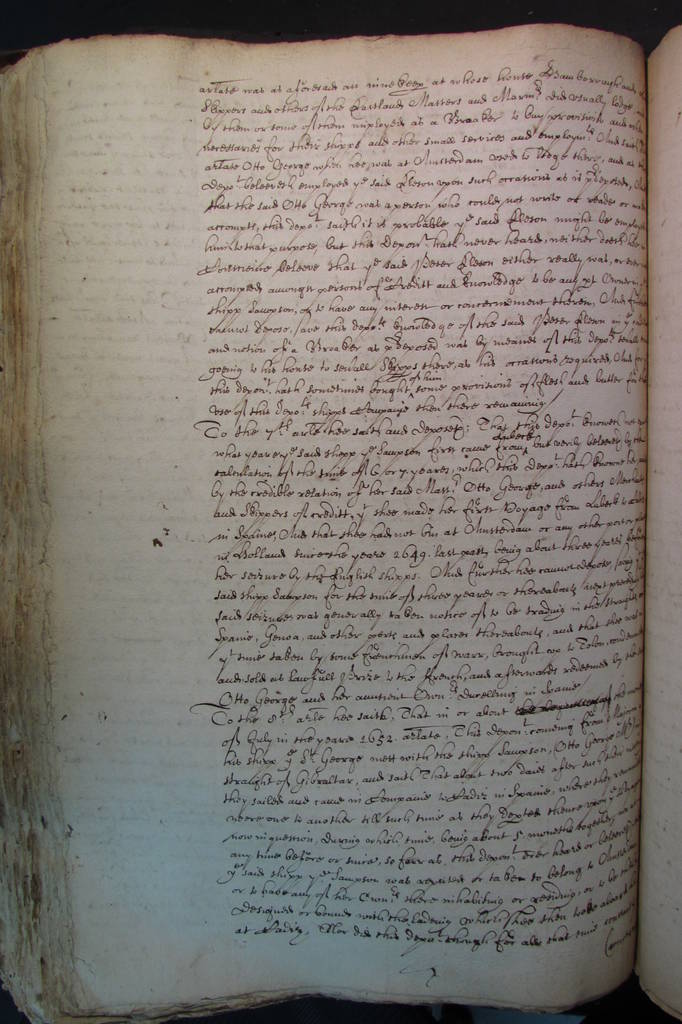 arlate was as aforesaid an Inne keep at whose house Hamborrough and
Skippers and others of the Eastland Masters and Marin:rs did usually lodge
by them or some of them imployed as a Broaker to buy provisions and
necessaries for their shipps and other small services and employm:ts And saith
arlate Otto George when hee was at Amsterdam used to lodge there, and as
depo:t beleeveth employed y:e said Pleson upon such occasions as is p:rdeposed,
that the said Otto George was a person who could not write or reade or
accompts, this depo:t saith it is probable y:e said Pleson might be employ
him to that purpose, but this Depon:t hath never heard, neither doeth
beleeve that y:e said Peter Pleson either really was, or
accompted amongst persons of Creditt and knowledge to be any p:t Owner
shipp Sampson, or to have any interest or concernment therein, And
cannot depose, save this depo:ts knowledge of the said Peter Pleson in y:e
and notion of a Broaker as p:rdeposed was by meanes of this depo:t
going to his house to severall Skipps there, as his occations required, And
this depon:t hath sometimes bought of him some provisions of flesh and butter for
use of this depo:ts shipps Companie then there remaining
To the 7:th arlte hee saith and deposeth: That this depo:t knoweth not
what yeare y:e said shipp y:e Sampson first came from Lubeck but verily beleeveth by
calculation of the time of 6 or 7 yeares, which this depo:t hath knowne her
by the credible relation of her said Mast:r Otto George, and others Merchants
and Skippers of creditt, y:t shee made her first Voyage from Lubeck to
in Spaine, And that shee had not bin at Amsterdam or any other port or
in Holland since the yeare 1649. last past, being about three yeares
her seizure by the English shipps. And further hee cannot depose, saving
said shipp Sampson for the time of three yeares or thereabouts next
said seizure was generally taken notice of to be trading in the straights
Spaine, Genoa, and other ports and places thereabouts, and that shee was
y:t time taken by some Frenchmen of warr, brought up to Tolon, condemned
and sold as lawfull Prize to the French, and afterwards redeemed by the
Otto George and her auntient Own:rs dwelling in Spaine
To the 8:th arlte hee saith, That in or about
of July in the yeare 1652. arlate, This depon:t comeing from
his shipp y:e S:t George mett with the shipp Sampson, Otto George
straight of Gibraltar, and saith That about two daies after such their
they sailed and came in Companie to Cadiz in Spaine, where they
neere one to another till such time as they departed thence upon y:e
now in question, during which time, being about 5. moneths together,
any time before or since, so farr as this depon:t ever heard or beleeveth
y:e said shipp y:e Sampson was reputed or taken to belong to Amsterdam
or to have any of her Own:rs there inhabiting or residing, or to be
designed or bound with the lading which shee then tooke aboard
at Cadiz, Nor did this depo:t though for all that time